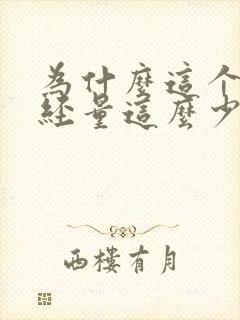 为什麼這个
經量這麼少
西樓有月